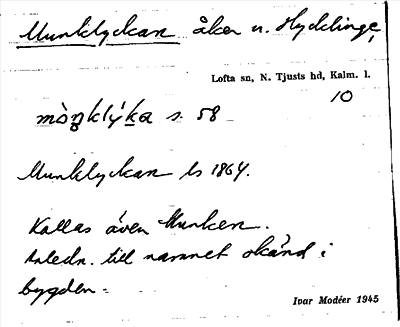 Munklyckan åker u. Hyddinge,
Lofta sn, N. Tjusts hd, Kalm. l.
10
mòŋklýka s. 58
Munklyckan ls 1864.
Kallas även Munken.
Anledn. till namnet okänd i
bygden.
Ivar Modéer 1945